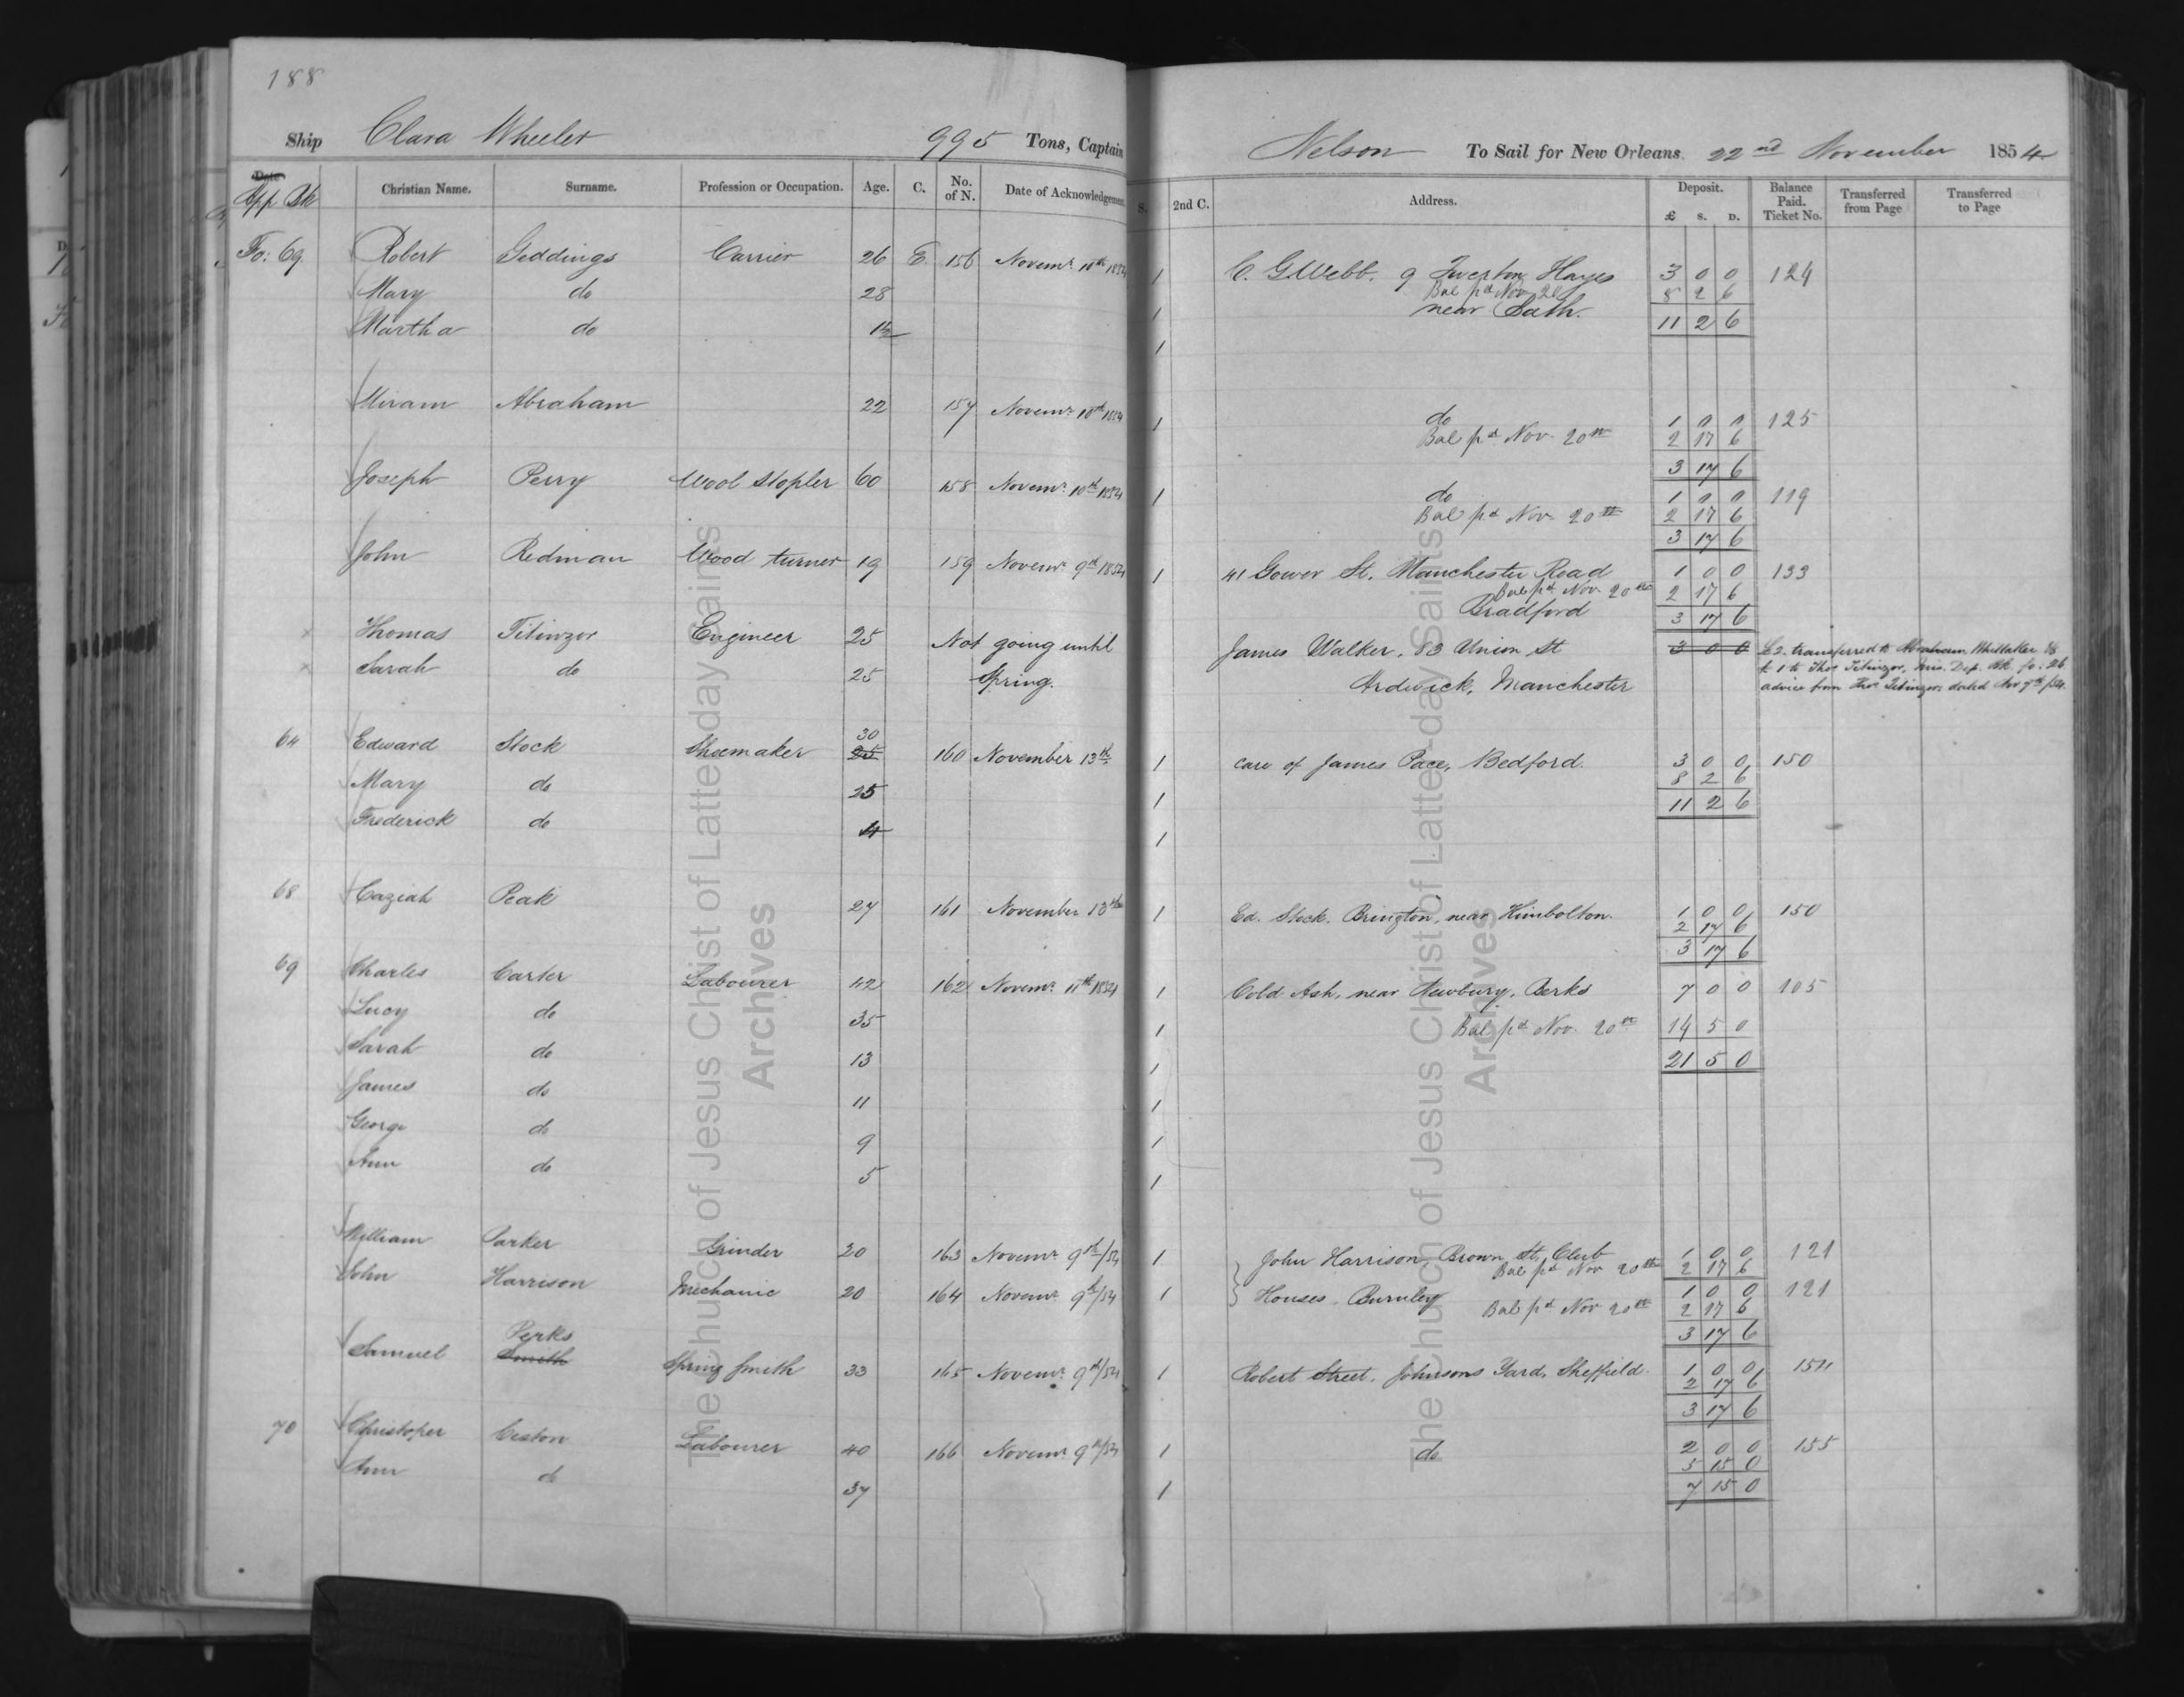 188
Ship Clara Wheeler 995 Tons, Captain Nelson To Sail for New Orleans 22nd November 1854
Date
App Bk Christian Name. Surname. Profession or Occupation. Age. C. No. of N. Date of Acknowledgement S. 2nd C. Address. Deposit. £ S. D. Balance Paid. Ticket No. Transferred from Page Transferred to Page
Fo: 69 Robert Geddings Carrier 26 E. 156 Novemr. 10th 1854 1 C. G Webb. 9 Twerton Hayes 3 0 0 124
Mary do 28 1 Bal pd Nov 20 8 2 6
near Bath.
Martha do 1 11 2 6
Miram Abraham 22 157 Novemr. 10th 1854 1 do 1 0 0 125
Bal pd Nov. 20th 2 17 6
3 17 6
Joseph Perry Wool Stopler 60 158 Novemr. 10th 1854 1 do 1 0 0 119
Bal pd Nov. 20th 2 17 6
3 17 6
John Redman Wood turner 19 159 Novemr. 9th 1854 1 41 Gower St. Manchester Road 1 0 0 133
Bal pd Nov. 20th 2 17 6
Bradford 3 17 6
x Thomas Titinzor Engineer 25 Not going until James Walker, 83 Union St 3 0 0 £2. transferred to Abraham Whittaker
x Sarah do 25 Spring. Ardwick, Manchester £1 to Thos Titinzor, Mis. Dep. Bk. fo: 26
advice from Thos Titinzor dated Nov 7th /54.
30
64 Edward Stock Shoemaker 25 160 November 13th 1 care of James Pace, Bedford. 3 0 0 150
8 2 6
Mary do 25 1 11 2 6
Frederick do 4 1
68 Caziah Peak 27 161 November 13th 1 Ed. Stock. Brington, near Kimbolton. 1 0 0 150
2 17 6
3 17 6
69 Charles Carter Labourer 42 162 Novemr. 11th 1854 1 Cold Ash, near Newbury, Berks 7 0 0 105
Lucy do 35 1 Bal pd Nov. 20th 14 5 0
Sarah do 13 1 21 5 0
James do 11 1
George do 9 1
Ann do 5 1
William Parker Grinder 20 163 Novemr. 9th/54 1 John Harrison, Brown St, Club 1 0 0 121
Bal pd Nov 20th 2 17 6
John Harrison Mechanic 20 164 Novemr. 9th/54 1 Houses, Burnley 1 0 0 121
Bal pd Nov 20th 2 17 6
3 17 6
Perks
Samuel Smith Spring Smith 33 165 Novemr. 9th/54 1 Robert Street, Johnsons Yard, Sheffield. 1 0 0 154
2 17 6
3 17 6
70 Christoper Ceston Labourer 40 166 Novemr 9th/54 1 do 2 0 0 155
5 15 0
Ann do 37 1 7 15 0
The Church of Jesus Christ of Latter-day Saints
Archives
The Church of Jesus Christ of Latter-day Saints
Archives